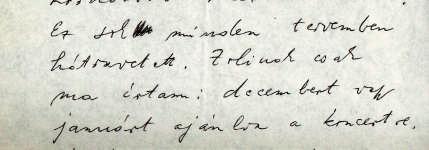 Ez sok minden tervemben
hátravetett. Zolinak csak
ma írtam: decembert vagy
januárt ajánlva a koncertre.